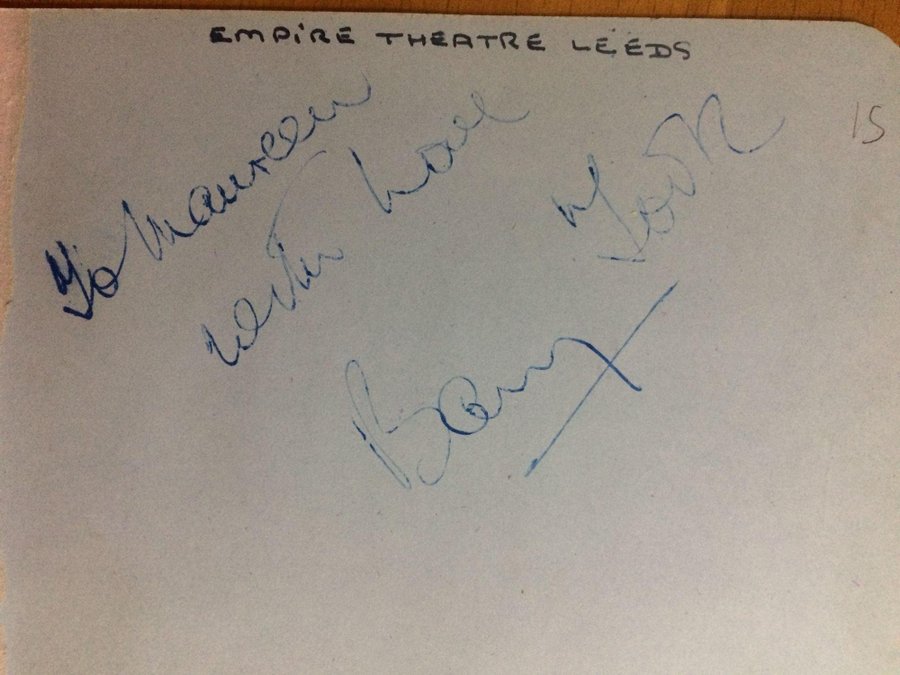 EMPIRE THEATRE LEEDS
15
To Maureen
with love
Barry Took